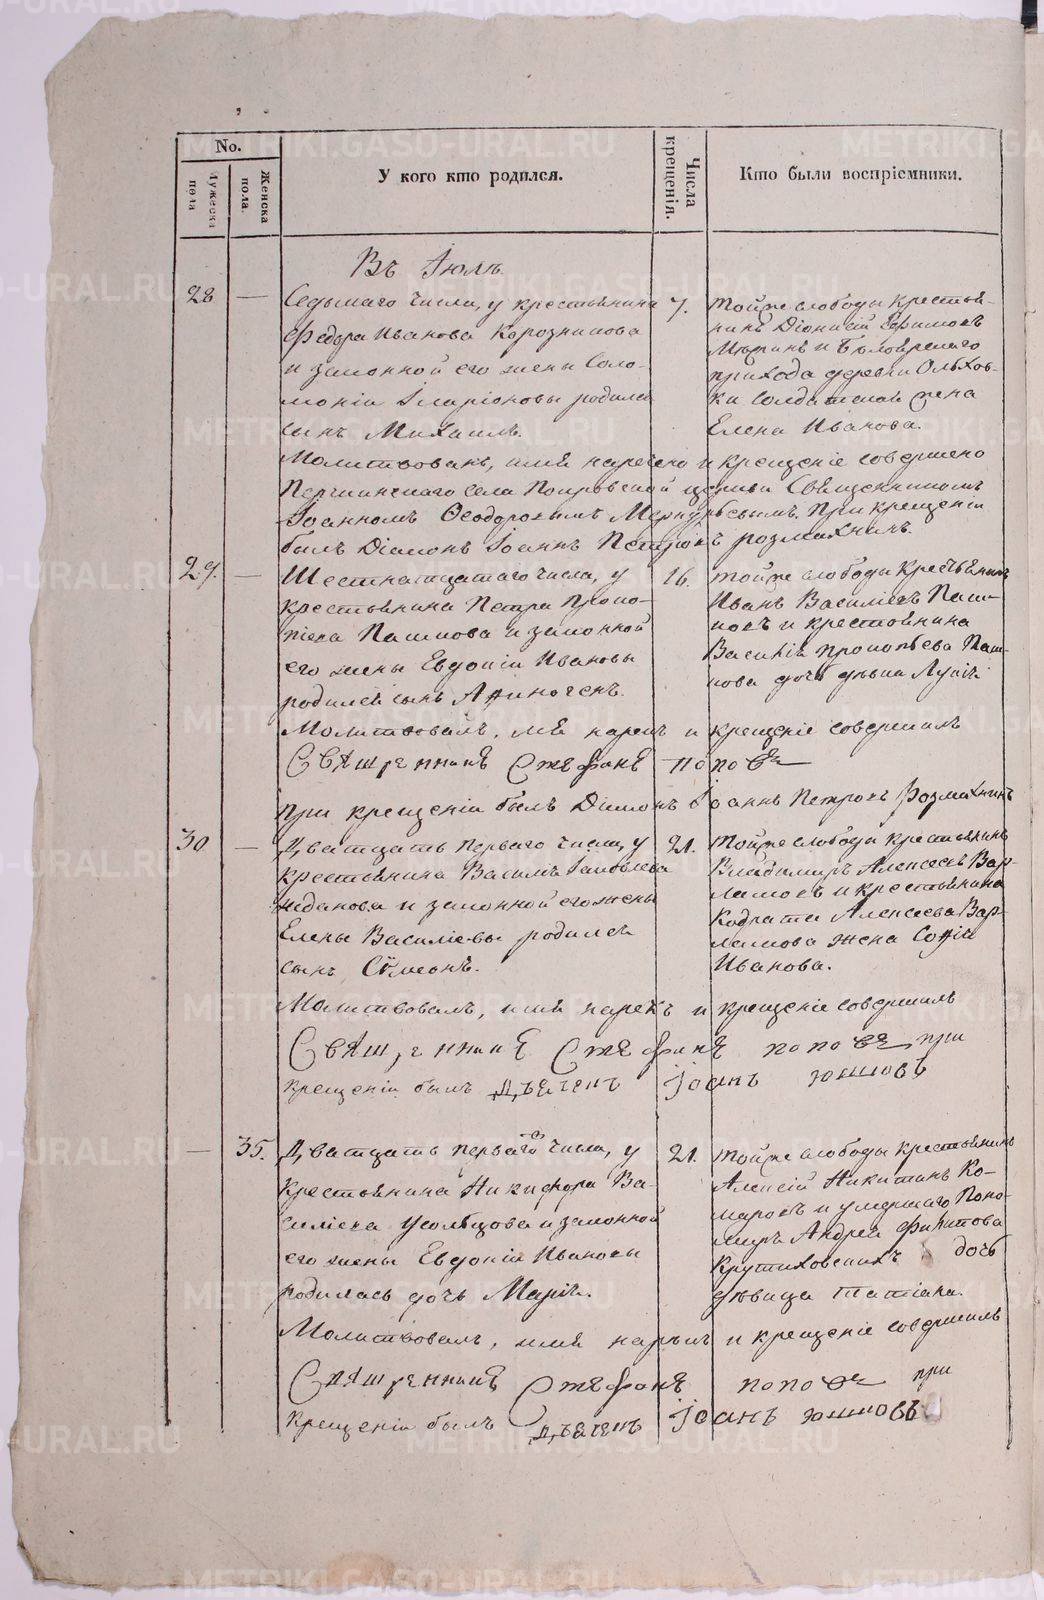 No.
Мужеска пола
Женска пола.
У кого кто родился.
Числа крещенія.
Кто были воспріемники.
Въ Іюлѣ
28 — Седьмаго числа, у крестьянина
Федора Иванова
и законной его жены Соло-
моніи Иларіоновы родился
сынъ Михаилъ.
7.
тойже слободы крестья-
нинъ Діонисій Ефимовъ
и Бѣлоярскаго
прихода деревни Ольхов-
ки солдатская жена
Елена Иванова.
Молитвованъ, имя наречено и крещеніе совершено
села Покровской церкви Священникомъ
Іоанномъ Ѳеодоровымъ При крещеніи
былъ Діаконъ Іоаннъ Петровъ Розмахнинъ.
29. — Шестнатцатаго числа, у
крестьянина Петра Проко-
піева Пашкова и законной
его жены Евдокіи Ивановы
родился сынъ Афиногенъ.
16.
тойже слободы крестьянинъ
Иванъ Василіевъ Паш-
ковъ и крестьянина
Василія Прокопьева Паш-
кова дочь дѣвка Лукія.
Молитвовалъ, имя нарекъ и крещеніе совершилъ
Священникъ Стефанъ Поповъ
При крещеніи былъ Діаконъ Іоаннъ Петровъ Розмахнинъ
30 — Дватцать перваго числа, у
крестьянина Василья Іаковлева
Жданова и законной его жены
Елены Василіевы родился
сынъ Сѵмеонъ.
21.
тойже слободы крестьянинъ
Владимиръ Алексеевъ Вар-
ламовъ и крестьянина
Кодрата Алексеева Вар-
ламова жена Софія
Иванова.
Молитвовалъ, имя нарекъ и крещеніе совершилъ
Священникъ Стефанъ Поповъ при
крещеніи былъ Дьячекъ Іоанъ
— 35. Дватцать перваго числа, у
крестьянина Никифора Ва-
силіева Усольцова и законной
его жены Евдокіи Ивановы
родилась дочь Марія.
21.
тойже слободы крестьянинъ
Алексій Никитинъ Ко-
маровъ и умершаго Поно-
маря Андрея Филитова
Крутиховскихъ дочь
дѣвица Татіана.
Молитвовалъ, имя нарѣкъ и крещеніе совершилъ
Священникъ Стефанъ Поповъ при
крещеніи былъ Дьячекъ Іоанъ
METRIKI.GASO-URAL.RU